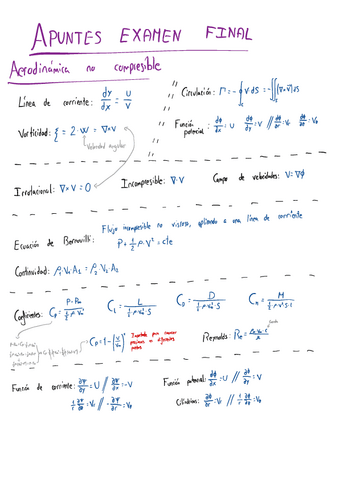 APUNTES EXAMEN FINAL
Aerodinámica no compresible
Línea de corriente: dy/dx = U/V
Circulación: Γ = -∮ V dS = -∬(∇×V)dS
Vorticidad: ξ = 2·W = ∇×V
Velocidad angular
Función potencial: dφ/dx = U dφ/dy = V // dφ/dr = Vr 1/r dφ/dθ = Vθ
Irrotacional: ∇×V = 0
Incompresible: ∇·V
Campo de velocidades: V = ∇φ
Flujo incompresible no viscoso, aplicado a una línea de corriente
Ecuación de Bernoulli: P + 1/2 ρ·V² = cte
Continuidad: ρ₁·V₁·A₁ = ρ₂·V₂·A₂
Coeficientes: Cp = P-P∞ / ½ρ·V∞²
C_L = L / ½ρ·V∞²·S
C_D = D / ½ρ·V∞²·S
C_M = M / ½ρ·V∞²·S·c
Cp = 1-(V/V∞)²
Importante para conocer presiones en diferentes puntos
Reynolds: Re =
Función de corriente: ∂Ψ/∂y = U // ∂Ψ/∂x = -V
1/r ∂Ψ/∂θ = Vr // -∂Ψ/∂r = Vθ
Función potencial: ∂φ/∂x = U // ∂φ/∂y = V
Cilíndricas: ∂φ/∂r = Vr // 1/r ∂φ/∂θ = Vθ